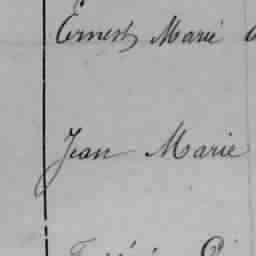 Ernest Marie
Jean Marie